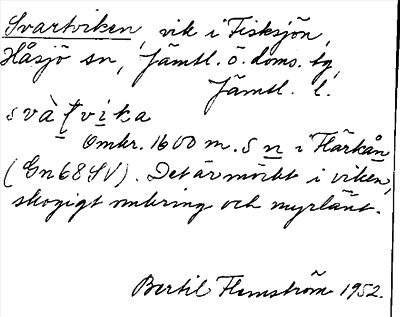 Svartviken, vik i Fisksjön,
Håsjö sn, Jämtl. ö. doms. tg,
Jämtl. l.
svàʈvika
Omkr. 1600 m. S n i Härkån
(En 68 SV). Det är mörkt i viken,
skogigt omkring och myrlänt.
Bertil Flemström 1952.